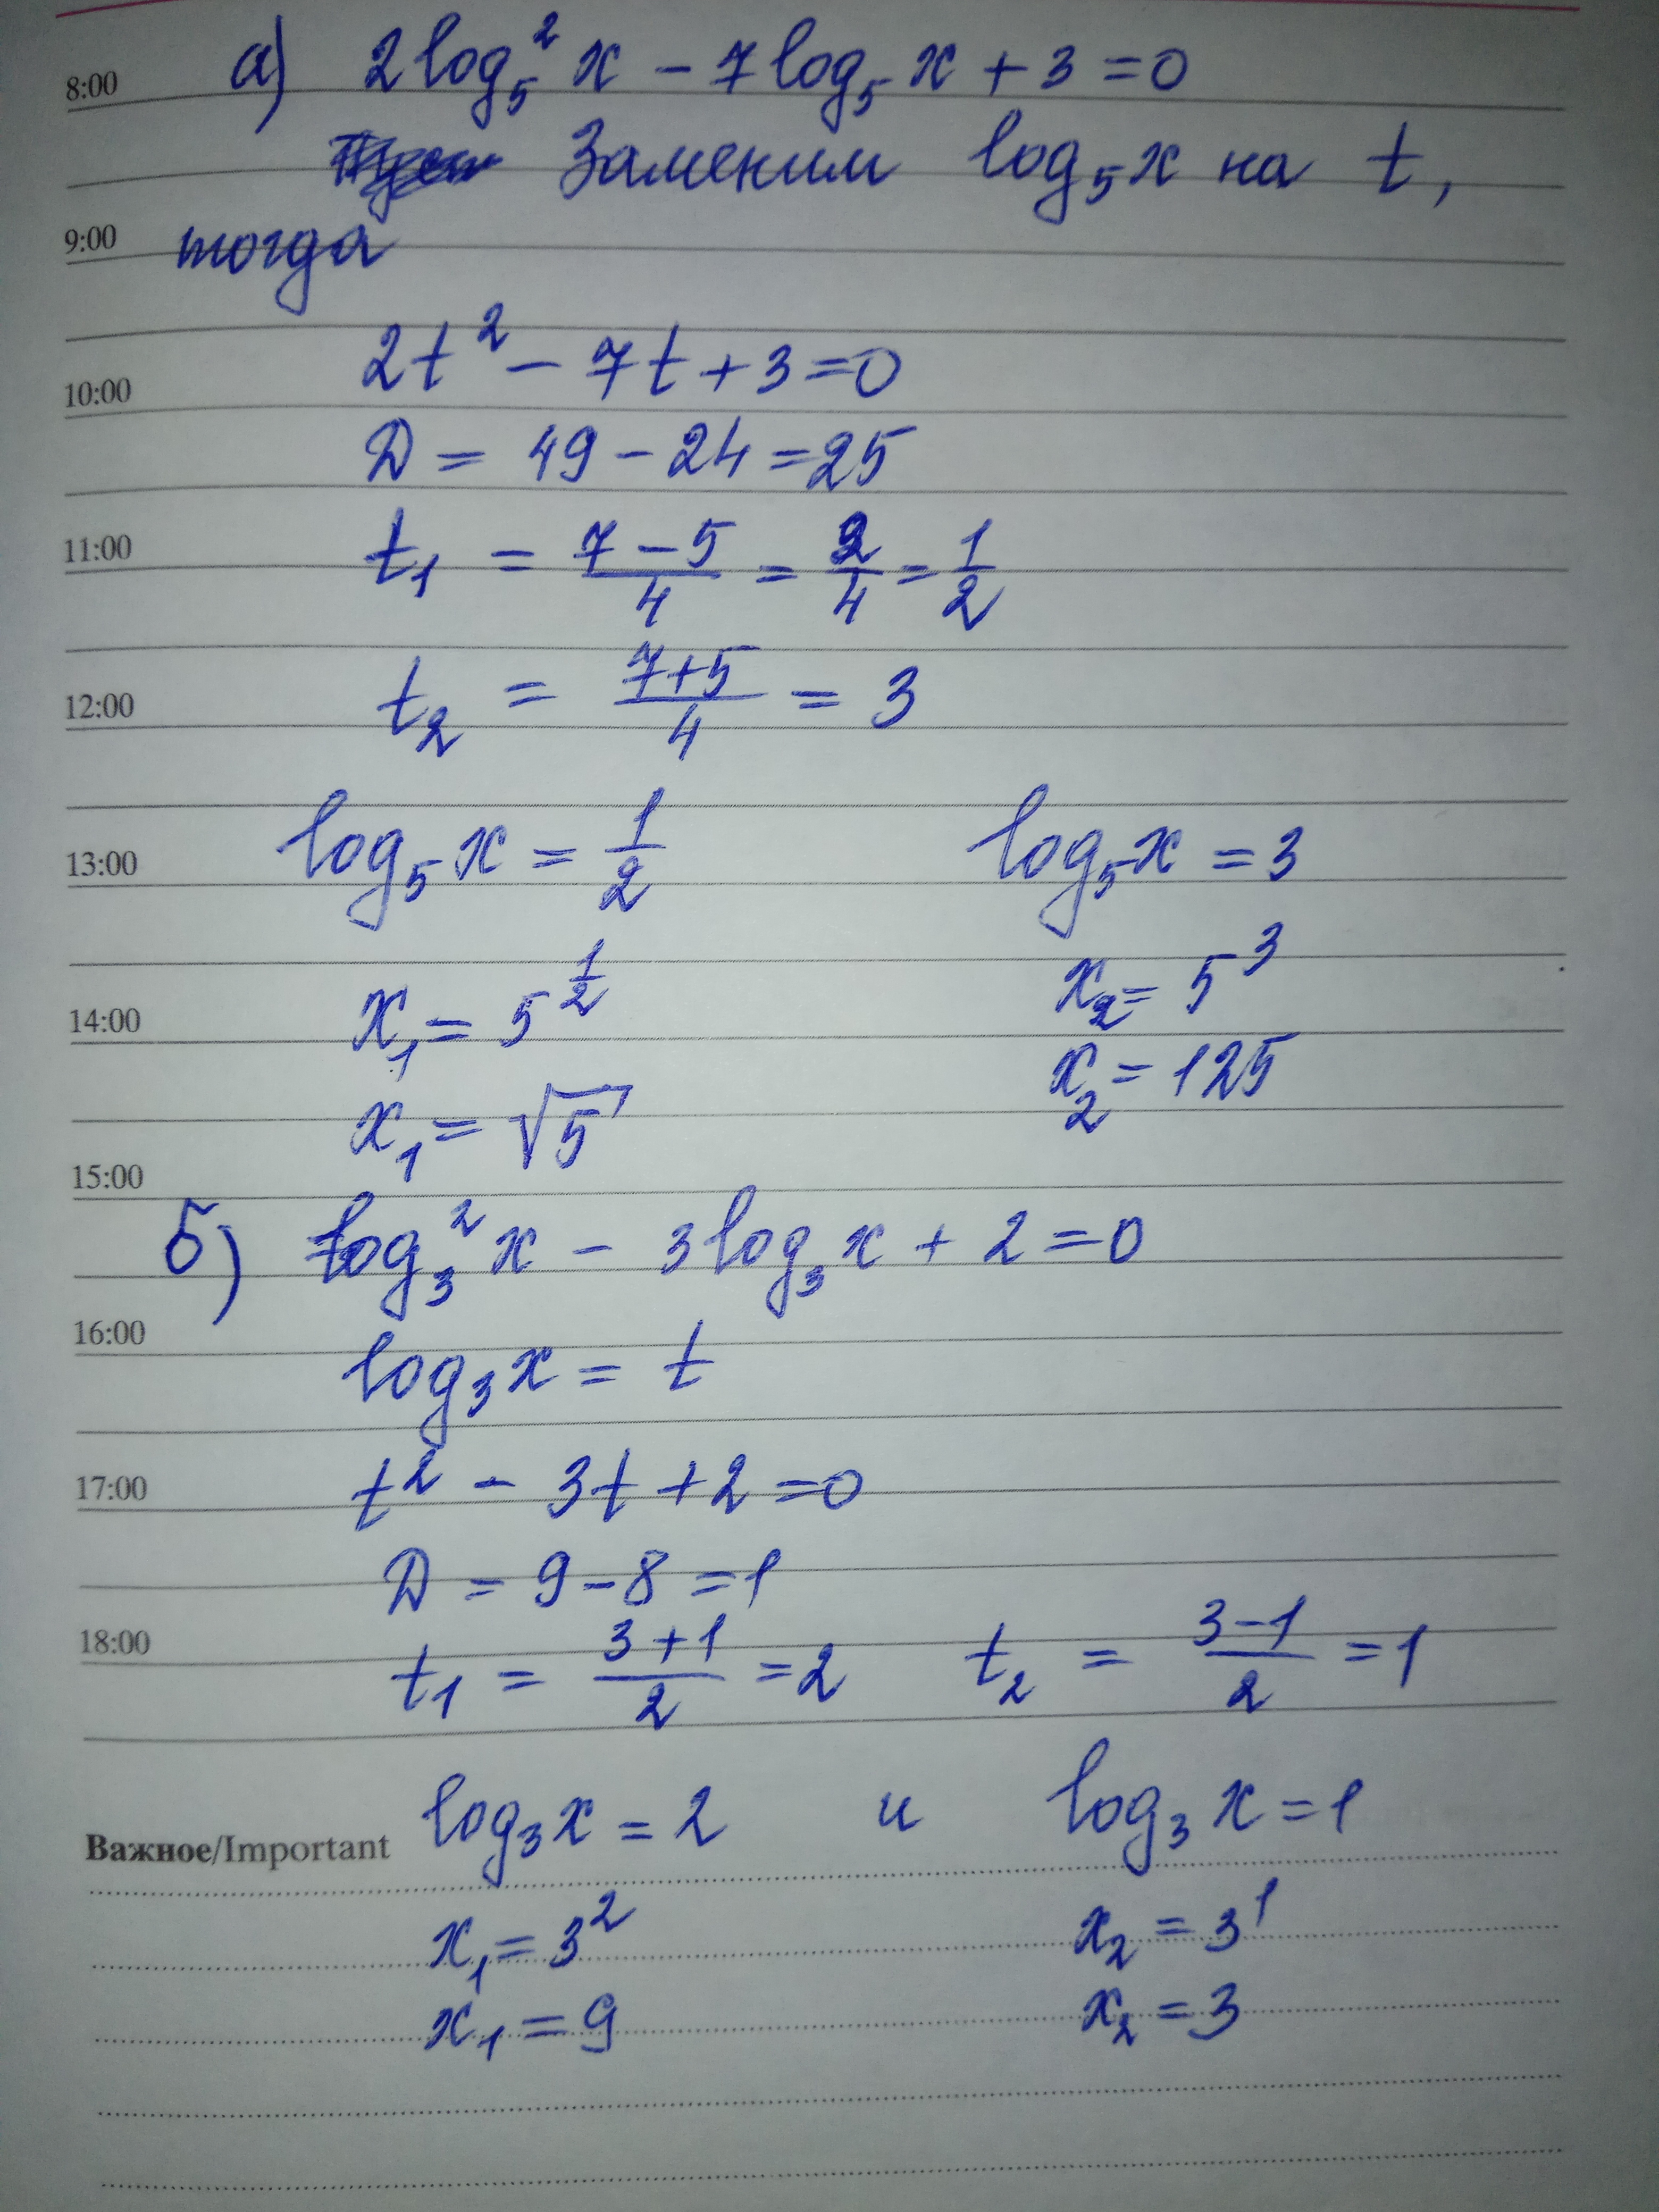 8:00 а) 2log₅²x - 7log₅x + 3 = 0
Заменим log₅x на t,
9:00 тогда
2t² - 7t + 3 = 0
10:00
D = 49 - 24 = 25
11:00 t₁ = (7-5)/4 = 2/4 = 1/2
12:00 t₂ = (7+5)/4 = 3
13:00 log₅x = 1/2 log₅x = 3
14:00 x₁ = 5^(1/2) x₂ = 5³
x₁ = √5 x₂ = 125
15:00
б) log₃²x - 3log₃x + 2 = 0
16:00
log₃x = t
17:00 t² - 3t + 2 = 0
D = 9 - 8 = 1
18:00 t₁ = (3+1)/2 = 2 t₂ = (3-1)/2 = 1
Важное/Important log₃x = 2 и log₃x = 1
x₁ = 3² x₂ = 3¹
x₁ = 9 x₂ = 3